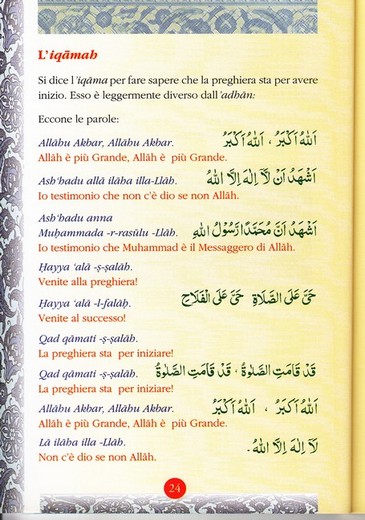 L'iqāmah
Si dice l'iqāma per fare sapere che la preghiera sta per avere
inizio. Esso è leggermente diverso dall'adhān:
Eccone le parole:
Allāhu Akbar, Allāhu Akbar. اَللهُ اَكْبَرُ ، اَللهُ اَكْبَرُ
Allāh è più Grande, Allāh è più Grande.
Ash'hadu allā ilāha illa-Llāh. اَشْهَدُ اَنْ لَّآ اِلٰهَ اِلَّا اللهُ
Io testimonio che non c'è dio se non Allāh.
Ash'hadu anna
Muḥammada -r-rasūlu -Llāh. اَشْهَدُ اَنَّ مُحَمَّدًا رَّسُوْلُ اللهِ
Io testimonio che Muhammad è il Messaggero di Allāh.
Ḥayya 'alā -ṣ-ṣalāh.
Venite alla preghiera!
Ḥayya 'alā -l-falāḥ. حَيَّ عَلَى الصَّلَاةِ حَيَّ عَلَى الْفَلَاحِ
Venite al successo!
Qad qāmati -ṣ-ṣalāh.
La preghiera sta per iniziare!
Qad qāmati -ṣ-ṣalāh. قَدْ قَامَتِ الصَّلٰوةُ ، قَدْ قَامَتِ الصَّلٰوةُ
La preghiera sta per iniziare!
Allāhu Akbar, Allāhu Akbar. اَللهُ اَكْبَرُ ، اَللهُ اَكْبَرُ
Allāh è più Grande, Allāh è più Grande.
Lā ilāha illa -Llāh. لَآ اِلٰهَ اِلَّا اللهُ.
Non c'è dio se non Allāh.
24